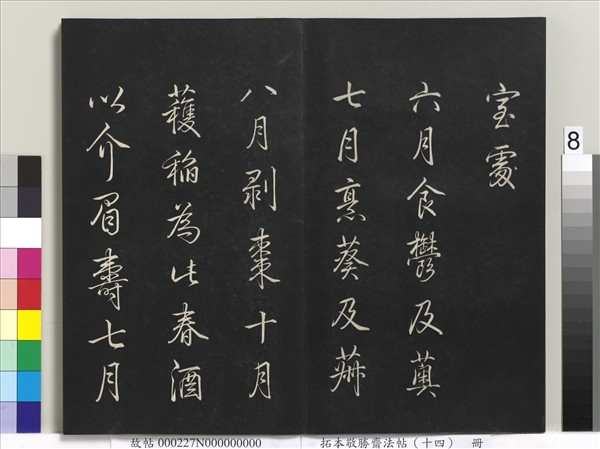 室處
六月食鬱及薁
七月烹葵及菽
八月剥棗十月
蘀稻為此春酒
以介眉壽七月
8
故帖 000227N000000000 拓本敬勝齋法帖(十四) 冊